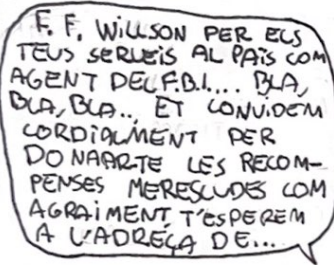 F. F. WILLSON PER ELS
TEUS SERVEIS AL PAÏS COM
AGENT DEL F.B.I.... BLA,
BLA, BLA.., ET CONVIDEM
CORDIALMENT PER
DONAARTE LES RECOM-
PENSES MERESCUDES COM
AGRAIMENT T'ESPEREM
A L'ADREÇA DE...